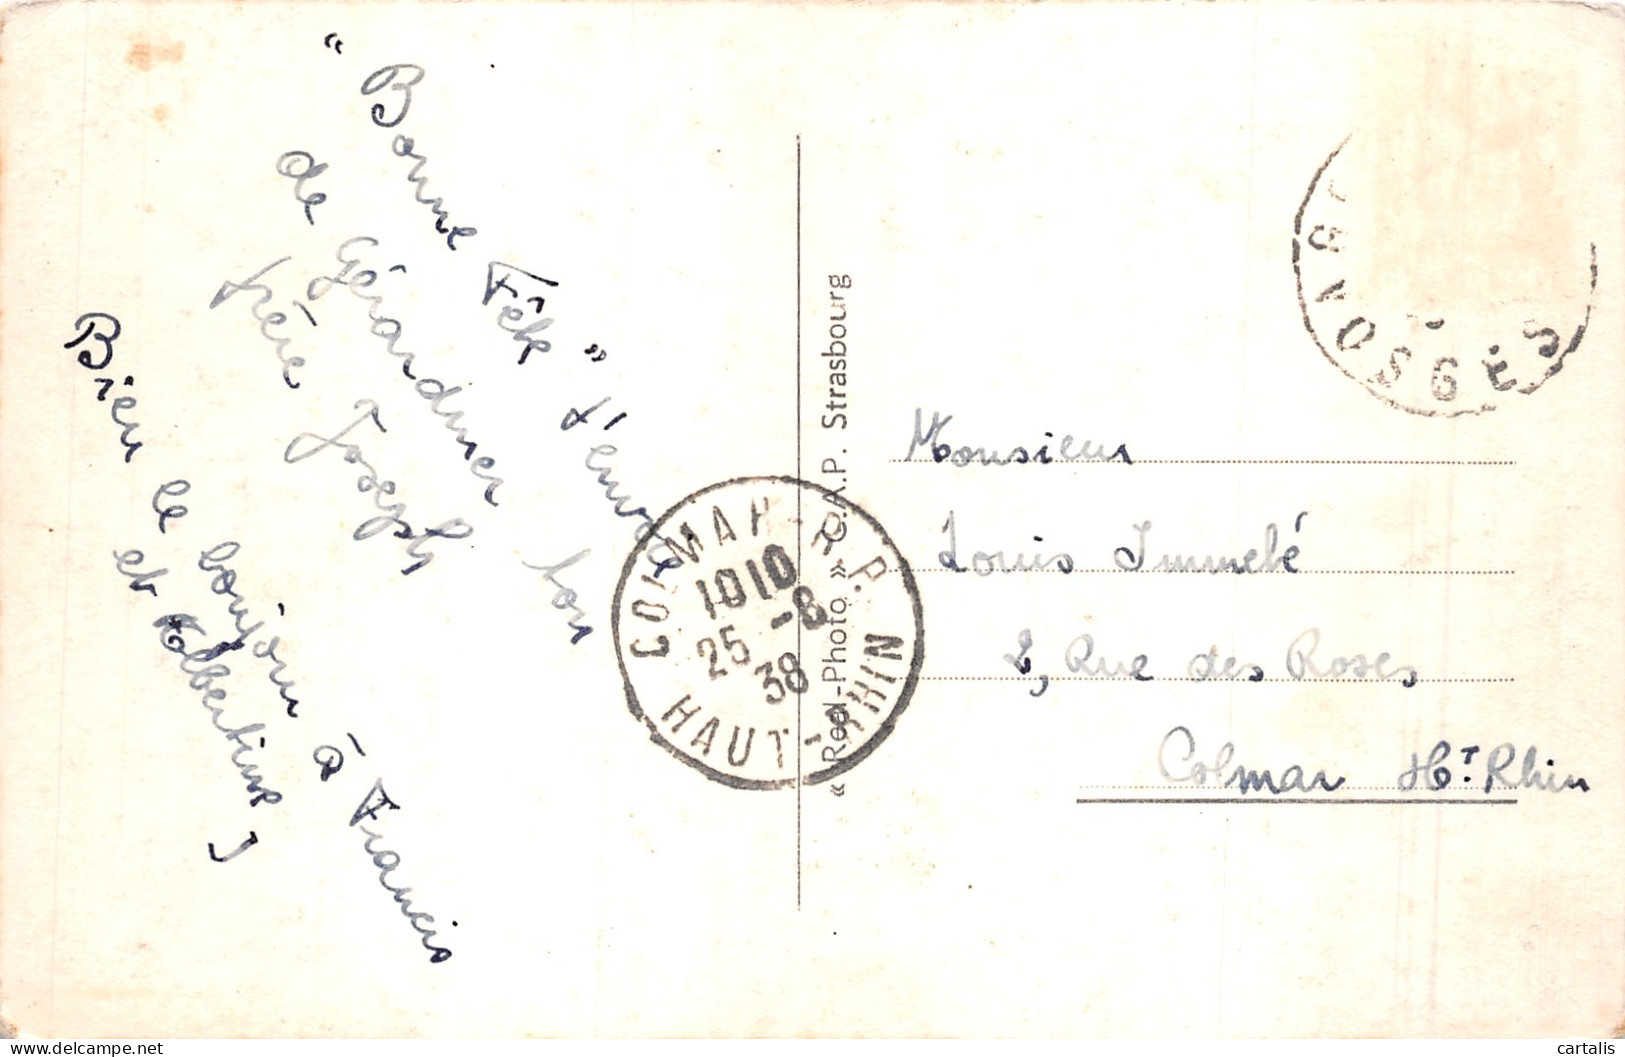 " Bonne Fête " t'envoie
de Gérardmer ton
frère Joseph
Bien le bonjour à Francis
et Albertine J
« Real-Photo » C.A.P. Strasbourg
COLMAR - R.P.
1010
25 -8
38
HAUT-RHIN
VOSGES
Monsieur
Louis Immelé
2, Rue des Roses
Colmar Ht. Rhin
https://www.delcampe.net
cartalis